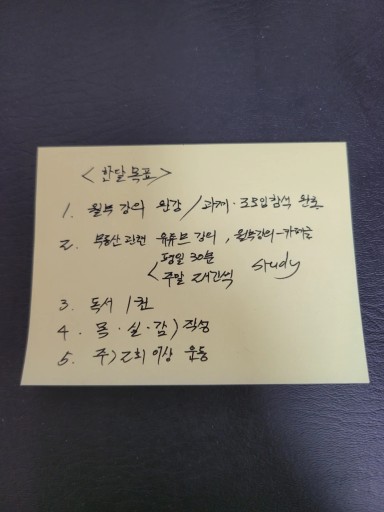 <한달목표>
1. 월부 강의 완강 / 과제·조모임참석 완료
2. 부동산 관련 유튜브 강의, 월부강의-카페글
평일 30분
< 주말 2시간씩 study
3. 독서 1권
4. 목·실·감) 작성
5. 주) 2회 이상 운동